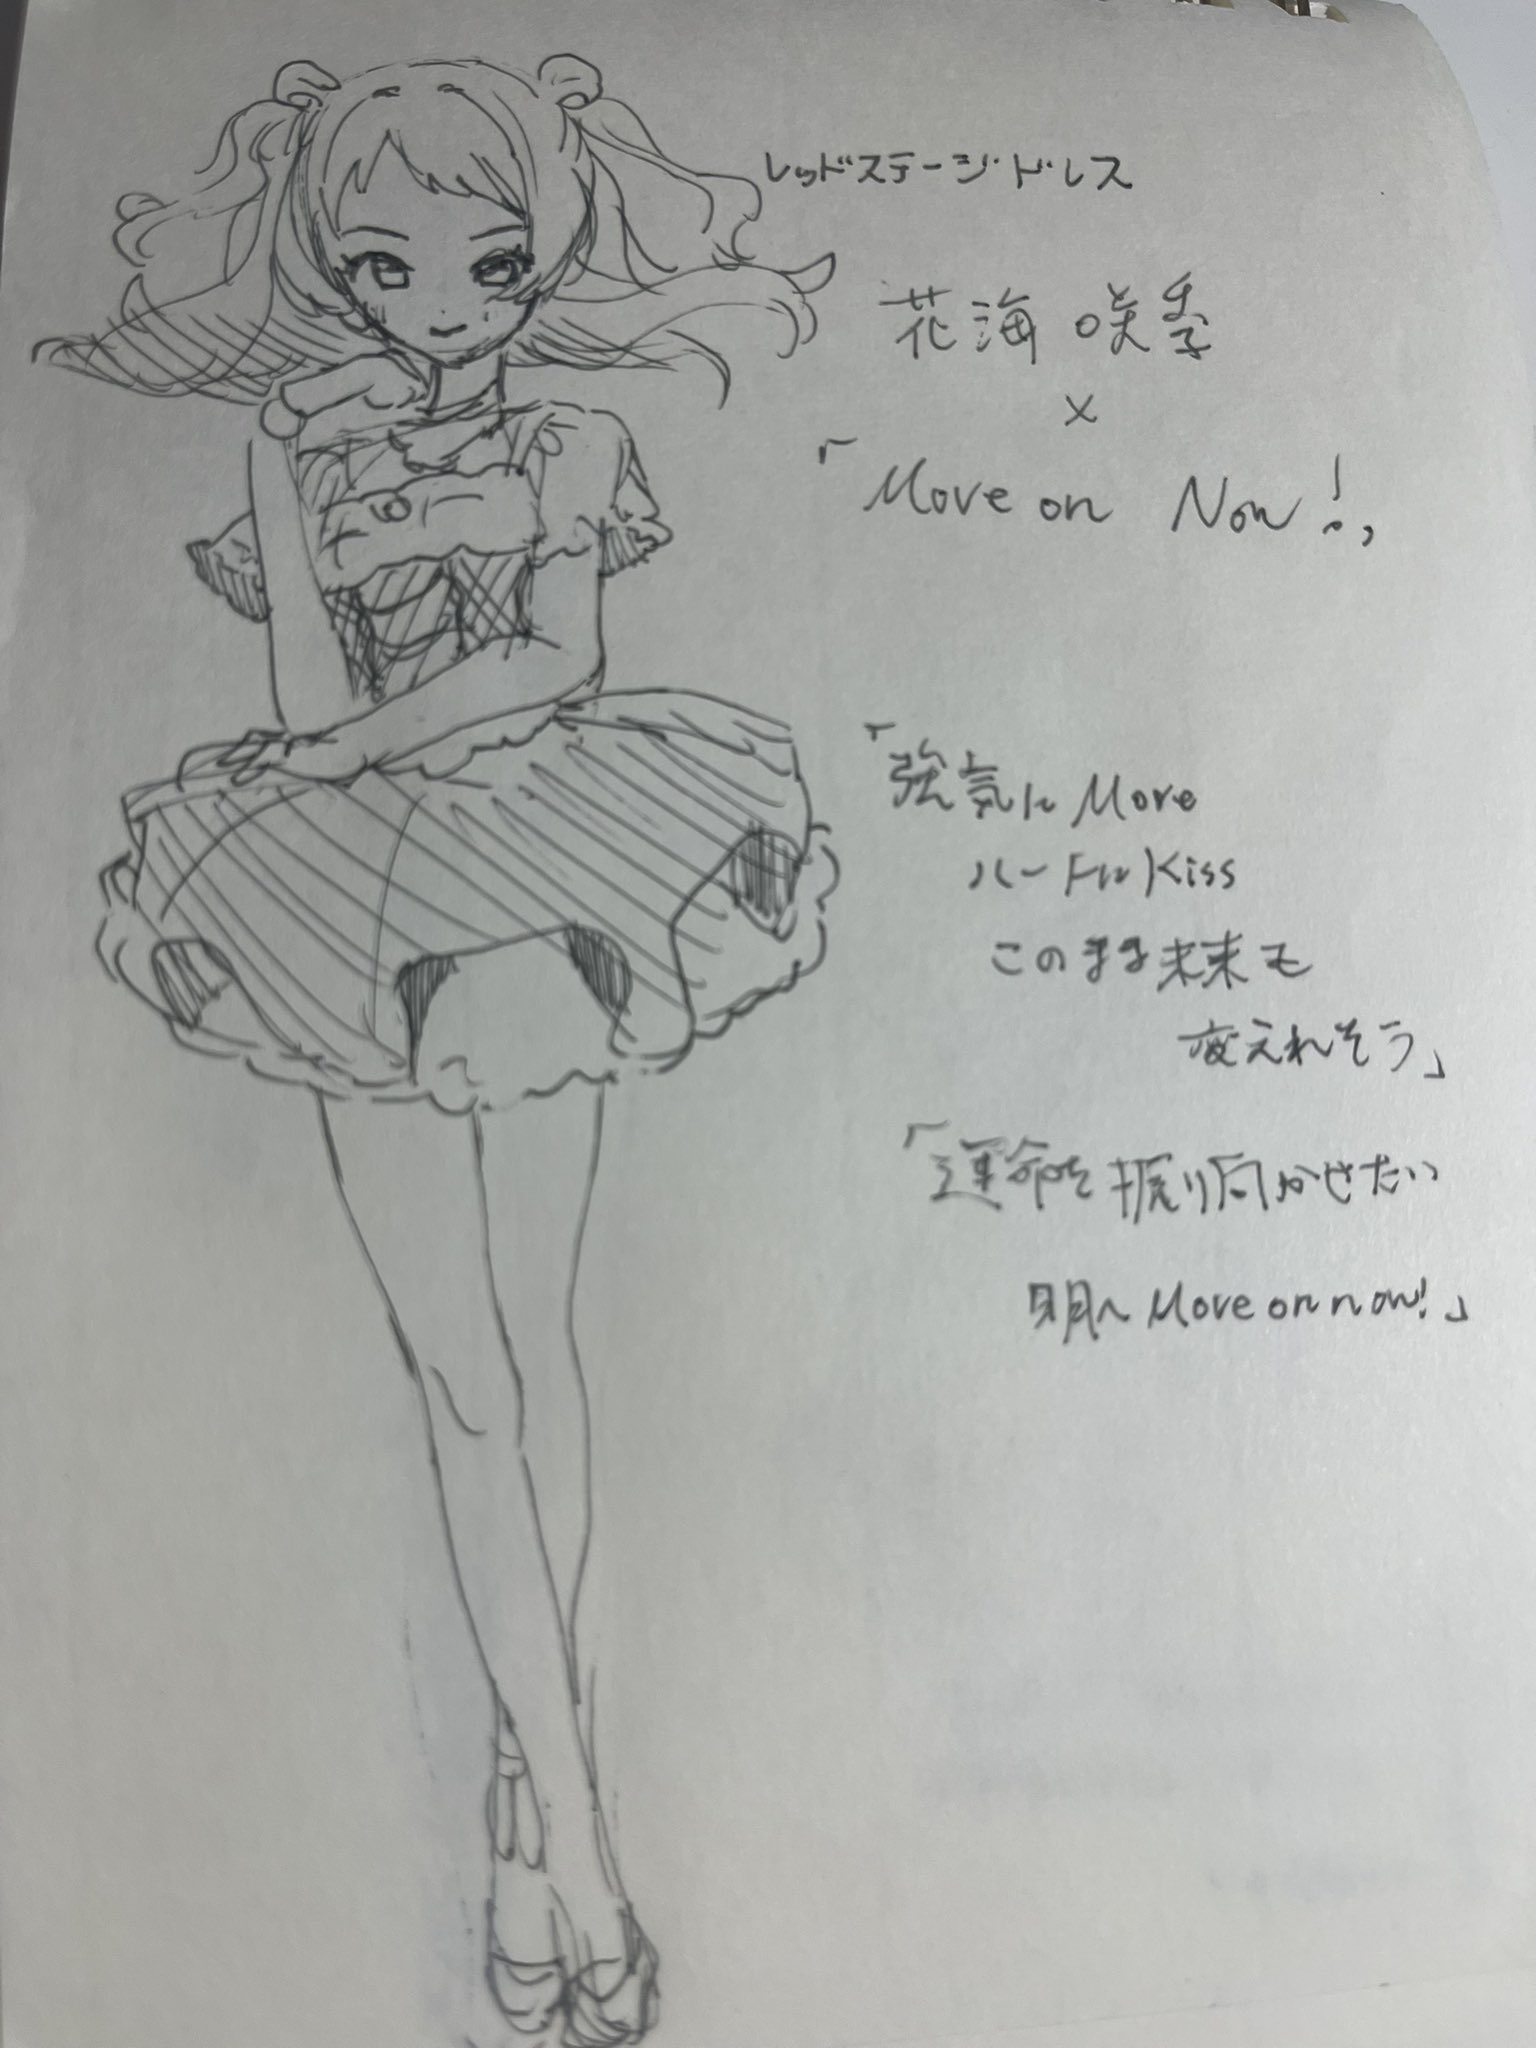 レッドステージ・ドレス
花海咲季
×
「Move on Now!」
「強気に More
ハートに Kiss
このまま未来も
変えれそう」
「運命を振り向かせたい
明日へ Move on now!」